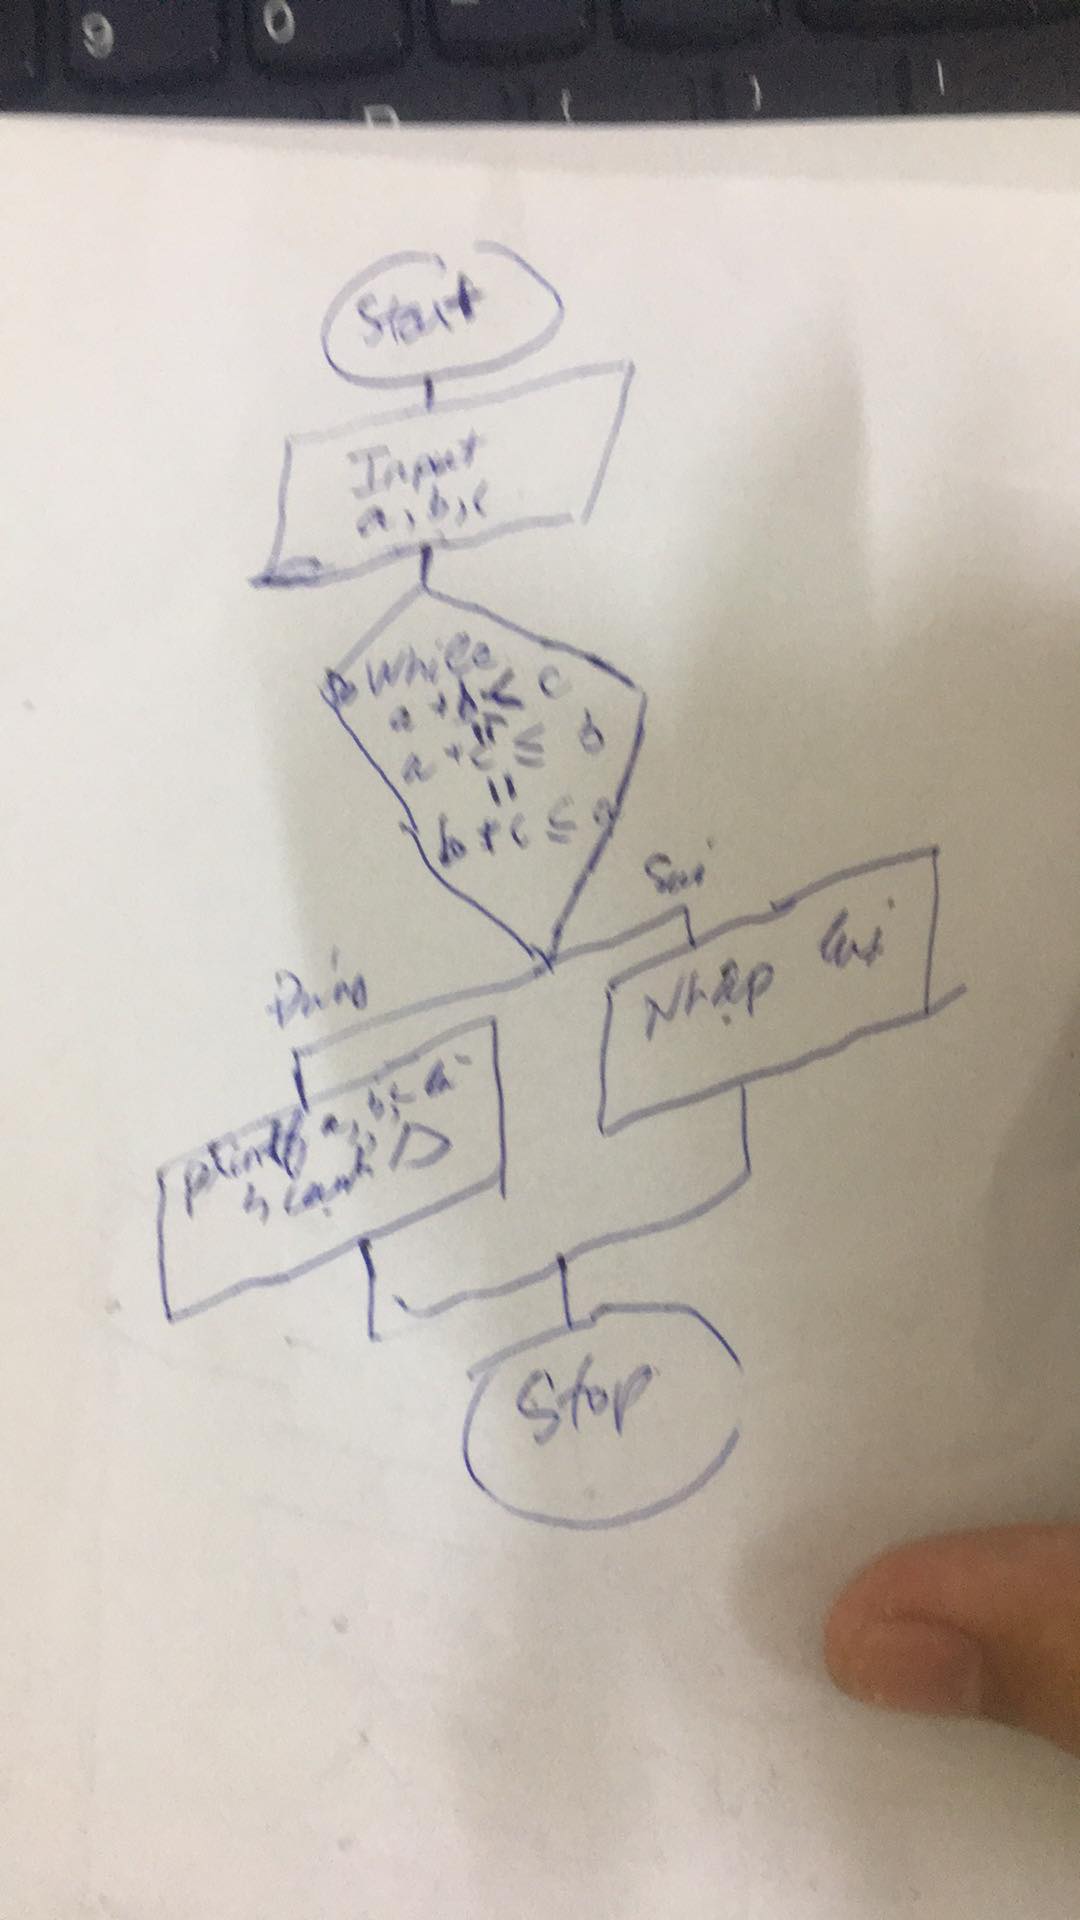 9
0
Start
Input
a, b, c
While
a + b ≤ c
||
a + c ≤ b
||
b + c ≤ a
Sai
Đúng
Nhập lại
printf a, b, c là
3 cạnh
Stop